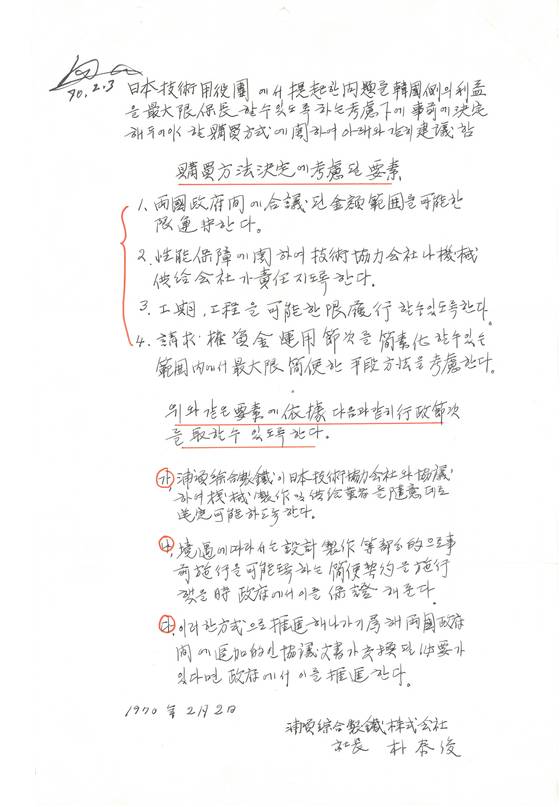 70.2.3
日本技術用役團에서 提起한 問題를 韓國側의 利益
을 最大限 保長할 수 있도록 하는 考慮下에 事前에 決定
해 두어야 할 購買方式에 関하여 아래와 같이 建議함
購買方法決定에 考慮될 要素
1. 両國政府間에 合議된 金額範囲을 可能한
限 遵守한다.
2. 性能保障에 関하여 技術協力会社나 機械
供給会社가 責任지도록 한다.
3. 工期, 工程을 可能한 限 履行할 수 있도록 한다.
4. 請求權資金 運用節次를 簡素化할 수 있는
範囲内에서 最大限 簡便한 手段方法을 考慮한다.
위와 같은 要素에 依據 다음과 같이 行政節次
를 取할 수 있도록 한다.
가, 浦項綜合製鐵이 日本技術協力会社와 協議
하여 機械製作 및 供給業者를 隨意대로
選定可能하도록 한다.
나, 境遇에 따라서는 設計製作 等 部分的으로 事
前施行을 可能토록 하는 簡便契約을 施行
했을 時 政府에서 이를 保證해 준다.
다, 이러한 方式으로 推進해 나가기 爲해 両國政府
間에 追加的인 協議文書가 交換될 必要가
있다면 政府에서 이를 推進한다.
1970年 2月 2日
浦項綜合製鐵株式会社
社長 朴泰俊